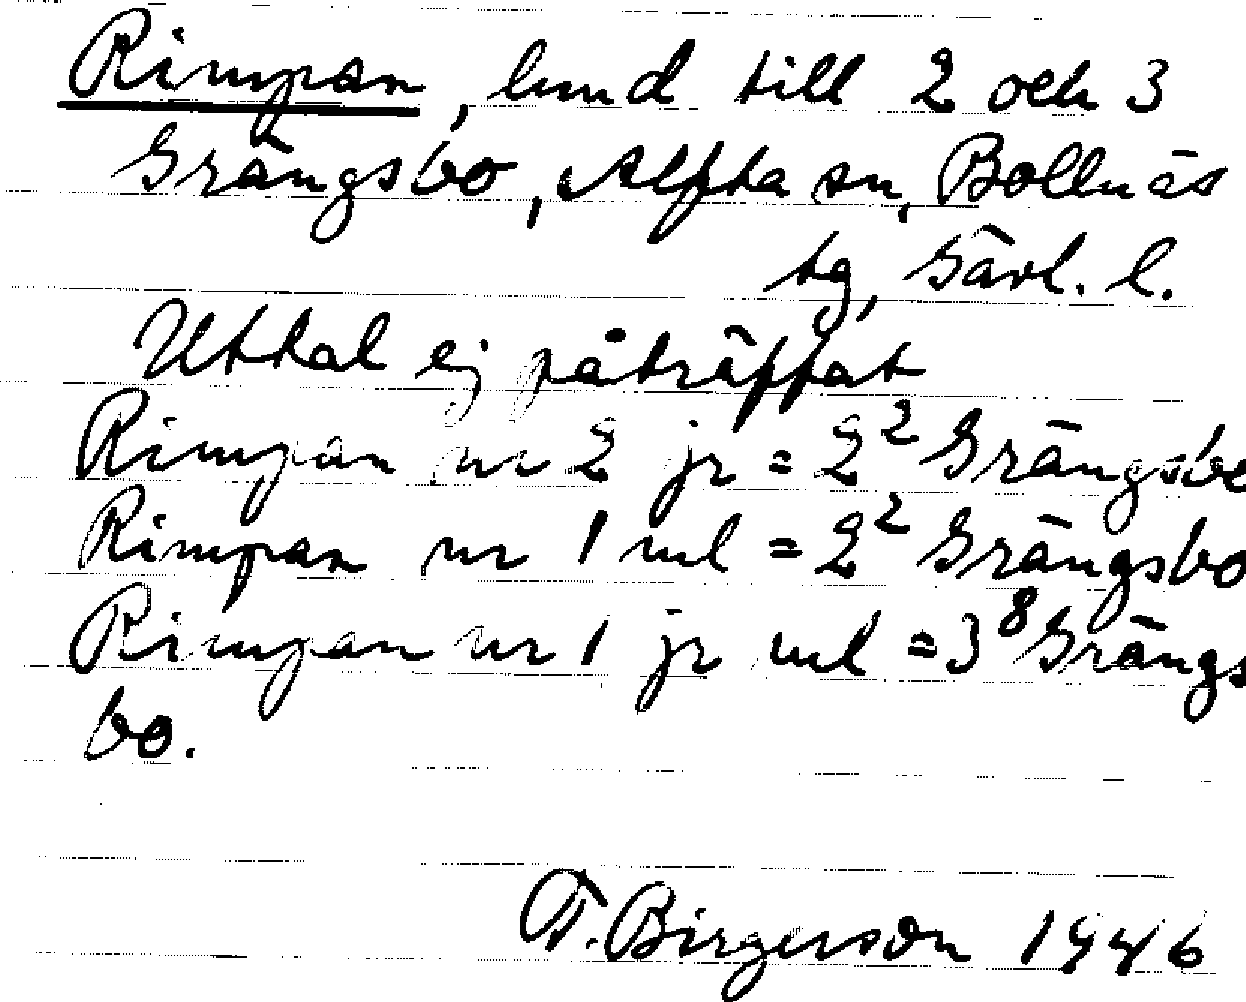 Rimpan, lund till 2 och 3
Grängsbo, Alfta sn, Bollnäs
tg, Gävl. l.
Uttal ej påträffat
Rimpan nr 2 jr = 2² Grängsbo
Rimpan nr 1 ml = 2² Grängsbo
Rimpan nr 1 jr ml = 3⁸ Grängs
bo.
F. Birgerson 1946